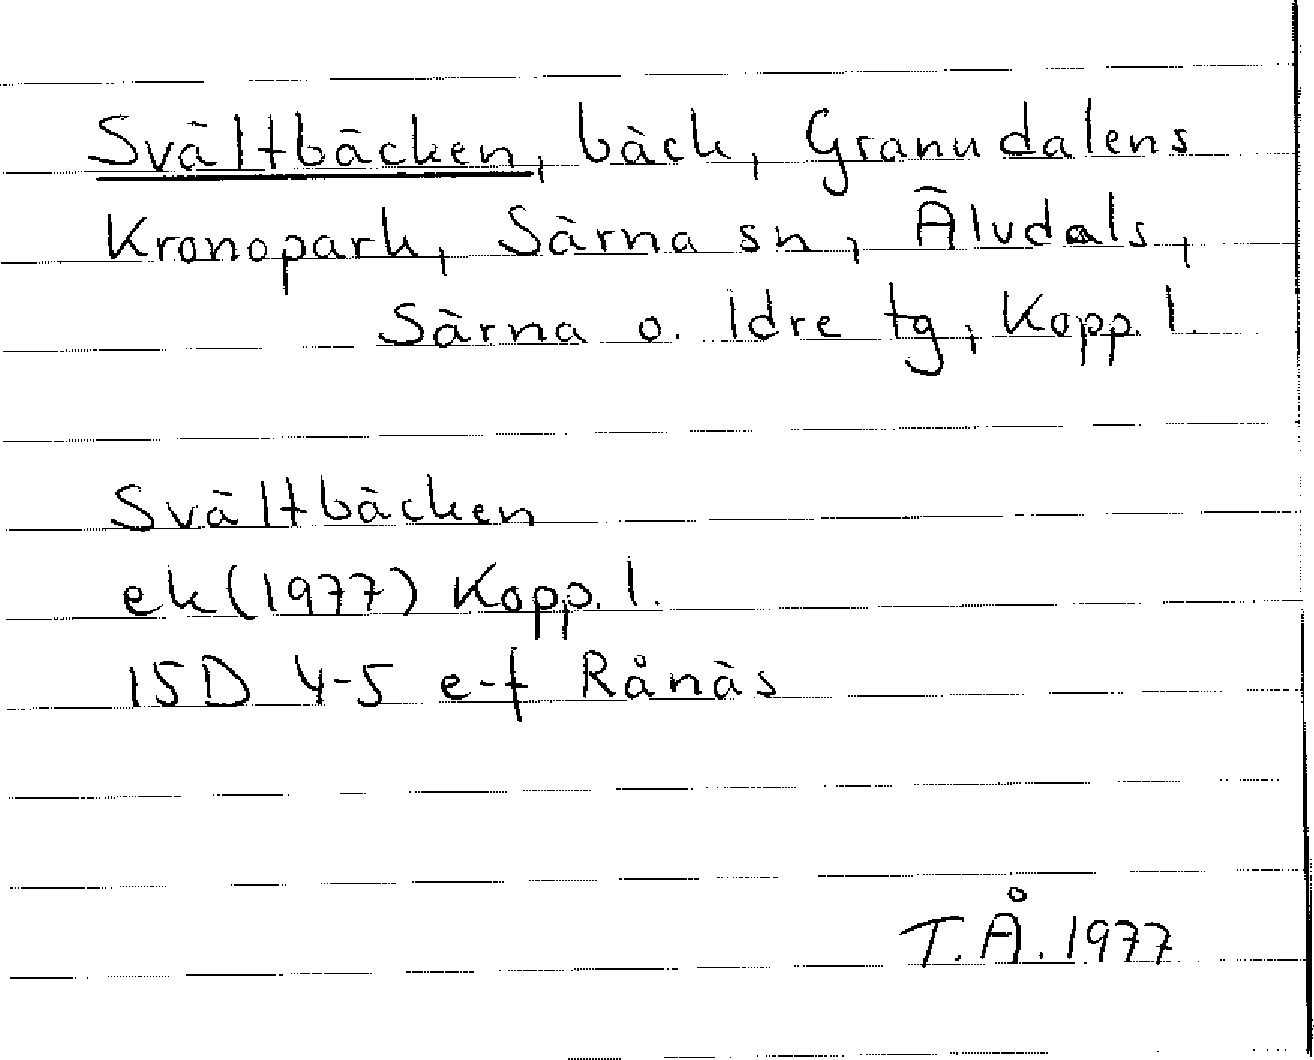 Svältbäcken, bäck, Granudalens
Kronopark, Särna sn, Älvdals,
Särna o. Idre tg, Kopp. l.
Svältbäcken
ek (1977) Kopp. l.
15D 4-5 e-f Rånäs
T.Å. 1977